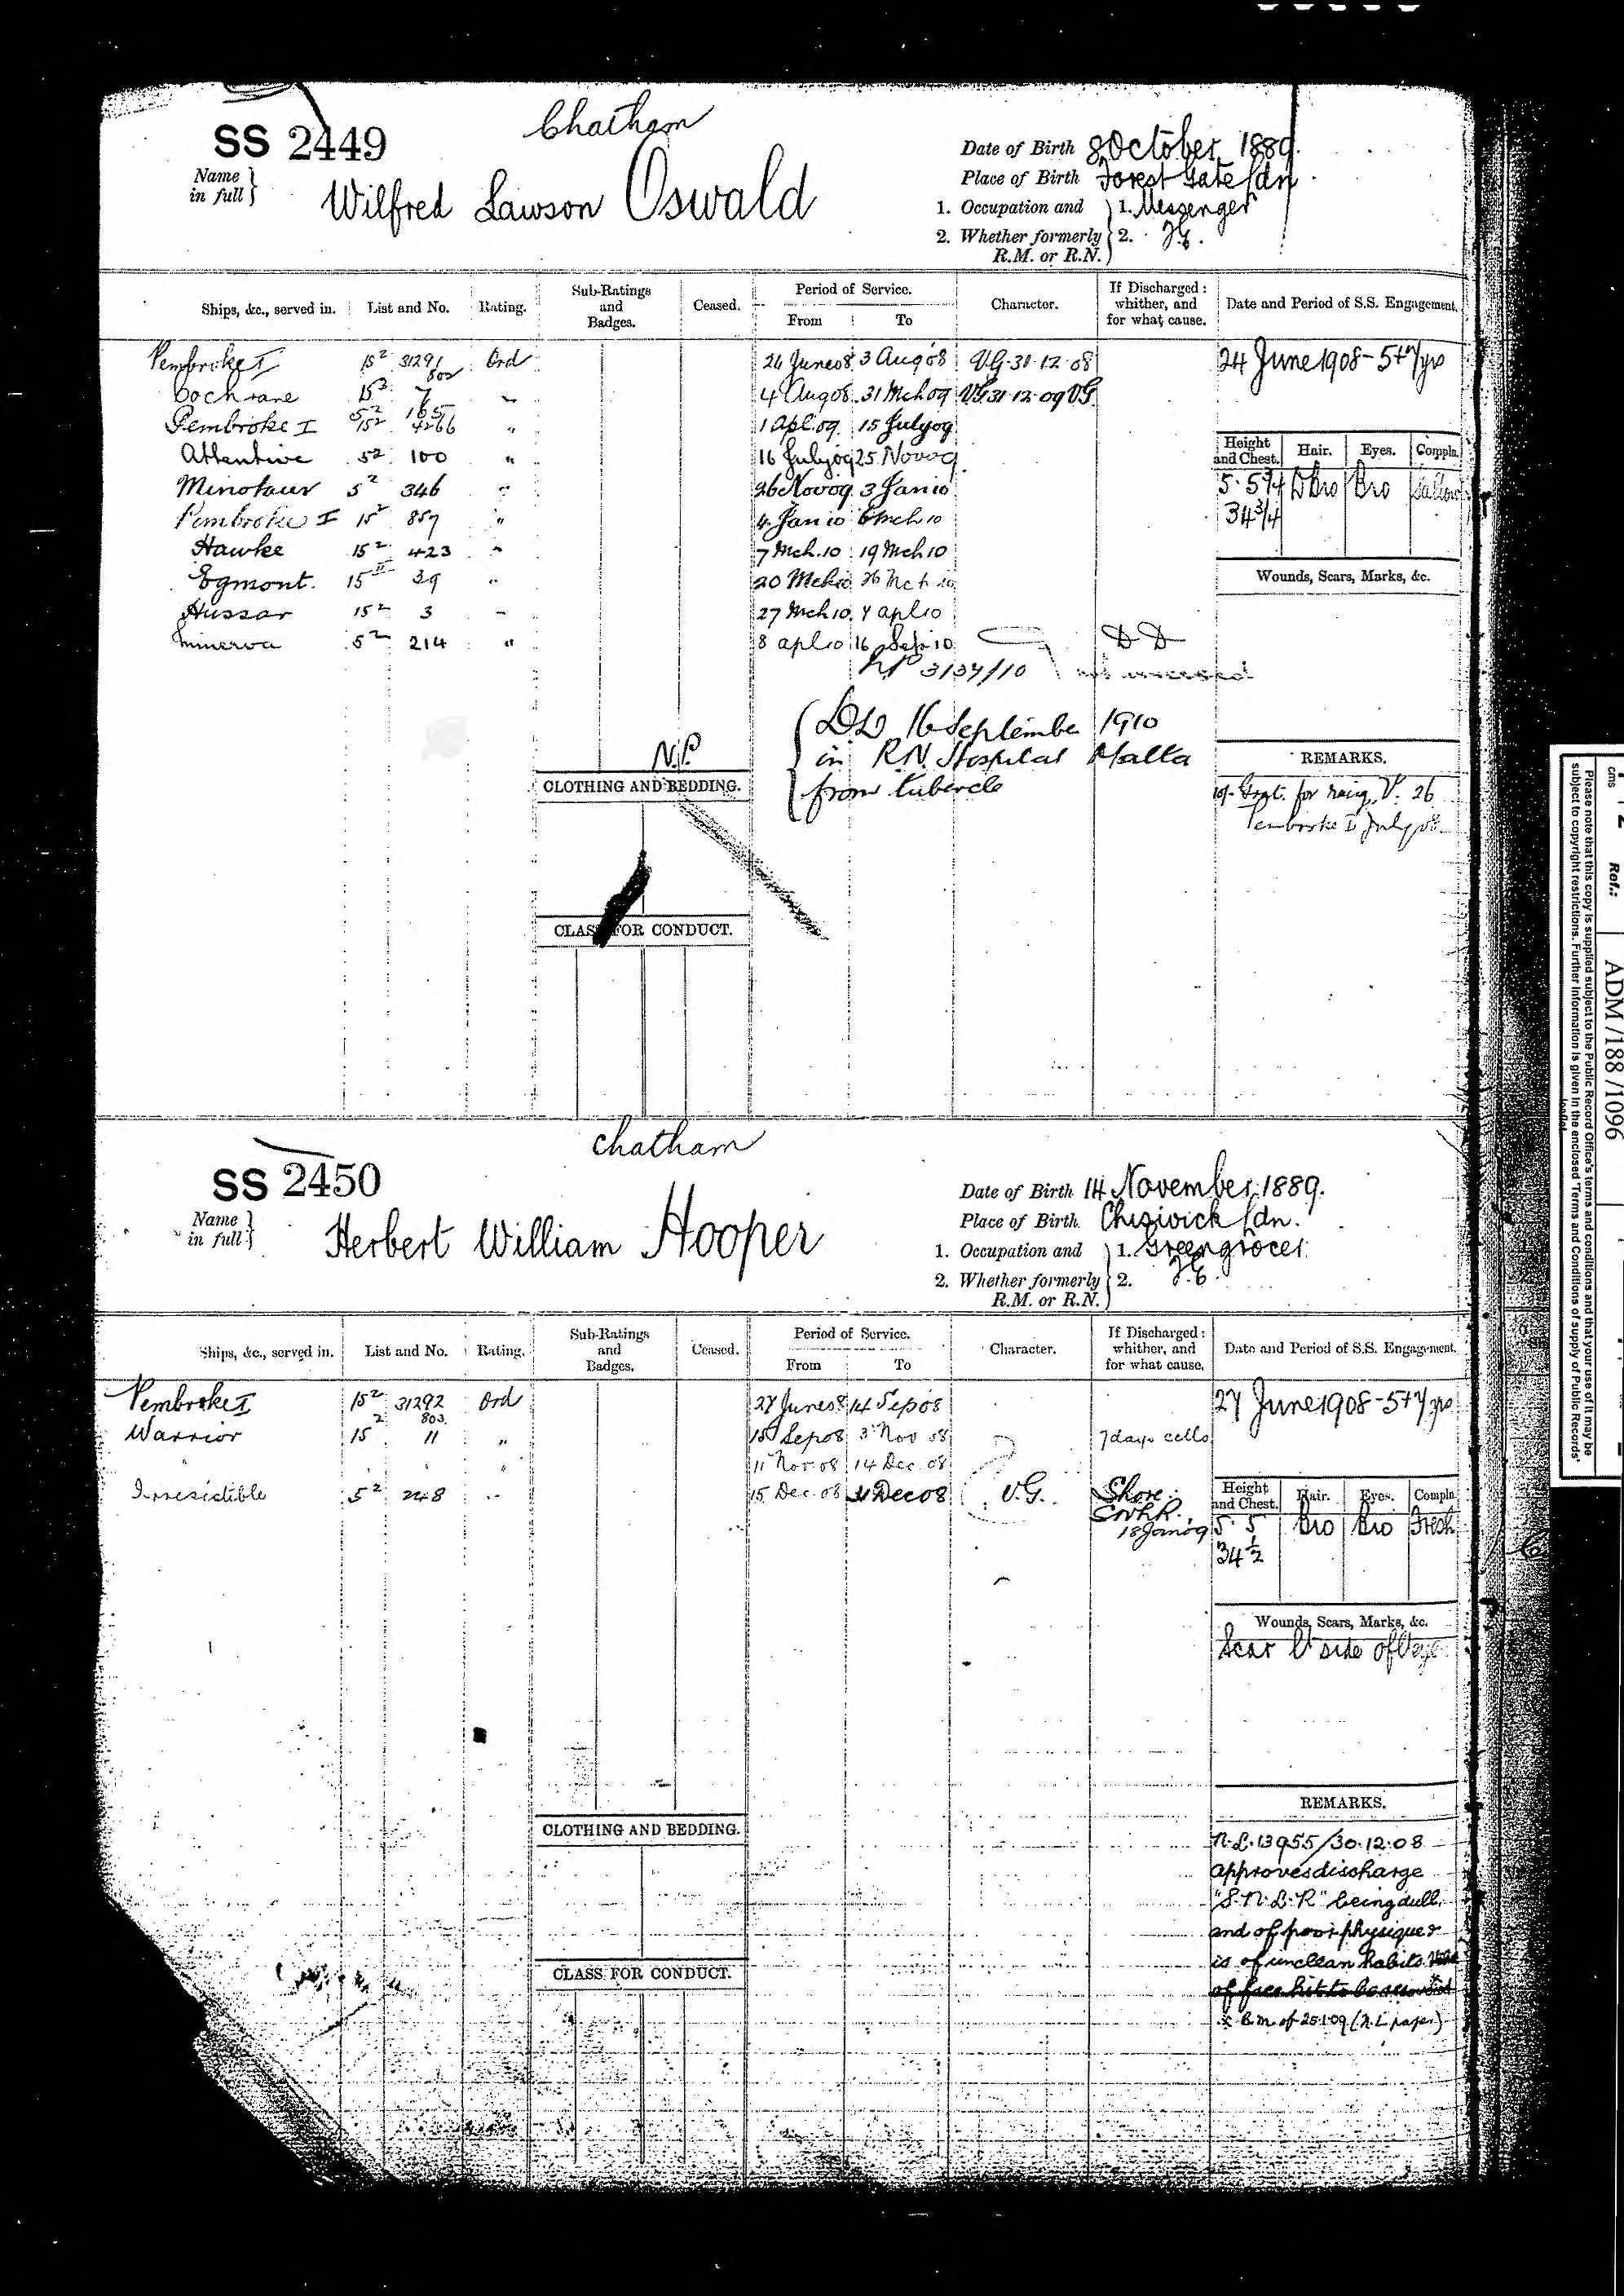 Chatham
SS 2449
Name in full } Wilfred Lawson Oswald
Date of Birth 8 October 1889.
Place of Birth Forest Gate Ldn
1. Occupation and } 1. Messenger
2. Whether formerly R.M. or R.N. } 2.
Ships, &c., served in. List and No. Rating. Sub-Ratings and Badges. Ceased. Period of Service. From To Character. If Discharged: whither, and for what cause. Date and Period of S.S. Engagement.
Pembroke I 15² 31291 802 Ord 24 June 08 3 Aug 08 VG 31.12.08 24 June 1908 - 5+7 yrs
Cochrane 15² 7 " 4 Aug 08 31 Mch 09 VG 31.12.09 VG.
Pembroke I 15² 4266 " 1 Apl. 09 15 July 09
Attentive 5² 100 " 16 July 09 25 Nov 09
Minotaur 5² 346 " 26 Nov 09 3 Jan 10
Pembroke I 15² 857 " 4 Jan 10 6 Mch 10
Hawke 15² 423 " 7 Mch. 10 19 Mch 10
Egmont. 15 39 " 20 Mch 10 26 Mch 10
Hussar 15² 3 " 27 Mch 10. 7 apl 10
Minerva 5² 214 " 8 apl 10 16 Sep 10 DD
NP 3137/10
Height and Chest. Hair. Eyes. Compln.
5. 5 DBro Bro Sallow
34 3/4
Wounds, Scars, Marks, &c.
DD 16 September 1910
in R.N. Hospital Malta
from tubercle
N.P.
CLOTHING AND BEDDING.
REMARKS.
Pembroke I July 08.
CLASS FOR CONDUCT.
Chatham
SS 2450
Name in full } Herbert William Hooper
Date of Birth 14 November 1889.
Place of Birth Chiswick Ldn.
1. Occupation and } 1. Greengrocer
2. Whether formerly R.M. or R.N. } 2.
Ships, &c., served in. List and No. Rating. Sub-Ratings and Badges. Ceased. Period of Service. From To Character. If Discharged: whither, and for what cause. Date and Period of S.S. Engagement.
Pembroke I 15² 31292 803. Ord 27 June 08 14 Sep 08 27 June 1908 - 5+7 yrs
Warrior 15² 11 " 15 Sep 08 3 Nov 08 7 days cells
" " " " 11 Nov 08 14 Dec. 08
Irresistible 5² 248 " 15 Dec. 08 31 Dec 08 V.G. Shore:
18 Jan 09
Height and Chest. Hair. Eyes. Compln.
5. 5 Bro Bro Fresh
34 1/2
Wounds, Scars, Marks, &c.
Scar side of
CLOTHING AND BEDDING.
REMARKS.
N.L. 13955/30.12.08
approves discharge
"S.N.L.R" being dull
and of poor physique &
is of unclean habits
x B.m. of 25.1.09 (N.L paper)
CLASS FOR CONDUCT.
cms 1 2 Ref.: ADM/188/1096
Please note that this copy is supplied subject to the Public Record Office's terms and conditions and that your use of it may be
subject to copyright restrictions. Further information is given in the enclosed 'Terms and Conditions of supply of Public Records'
leaflet